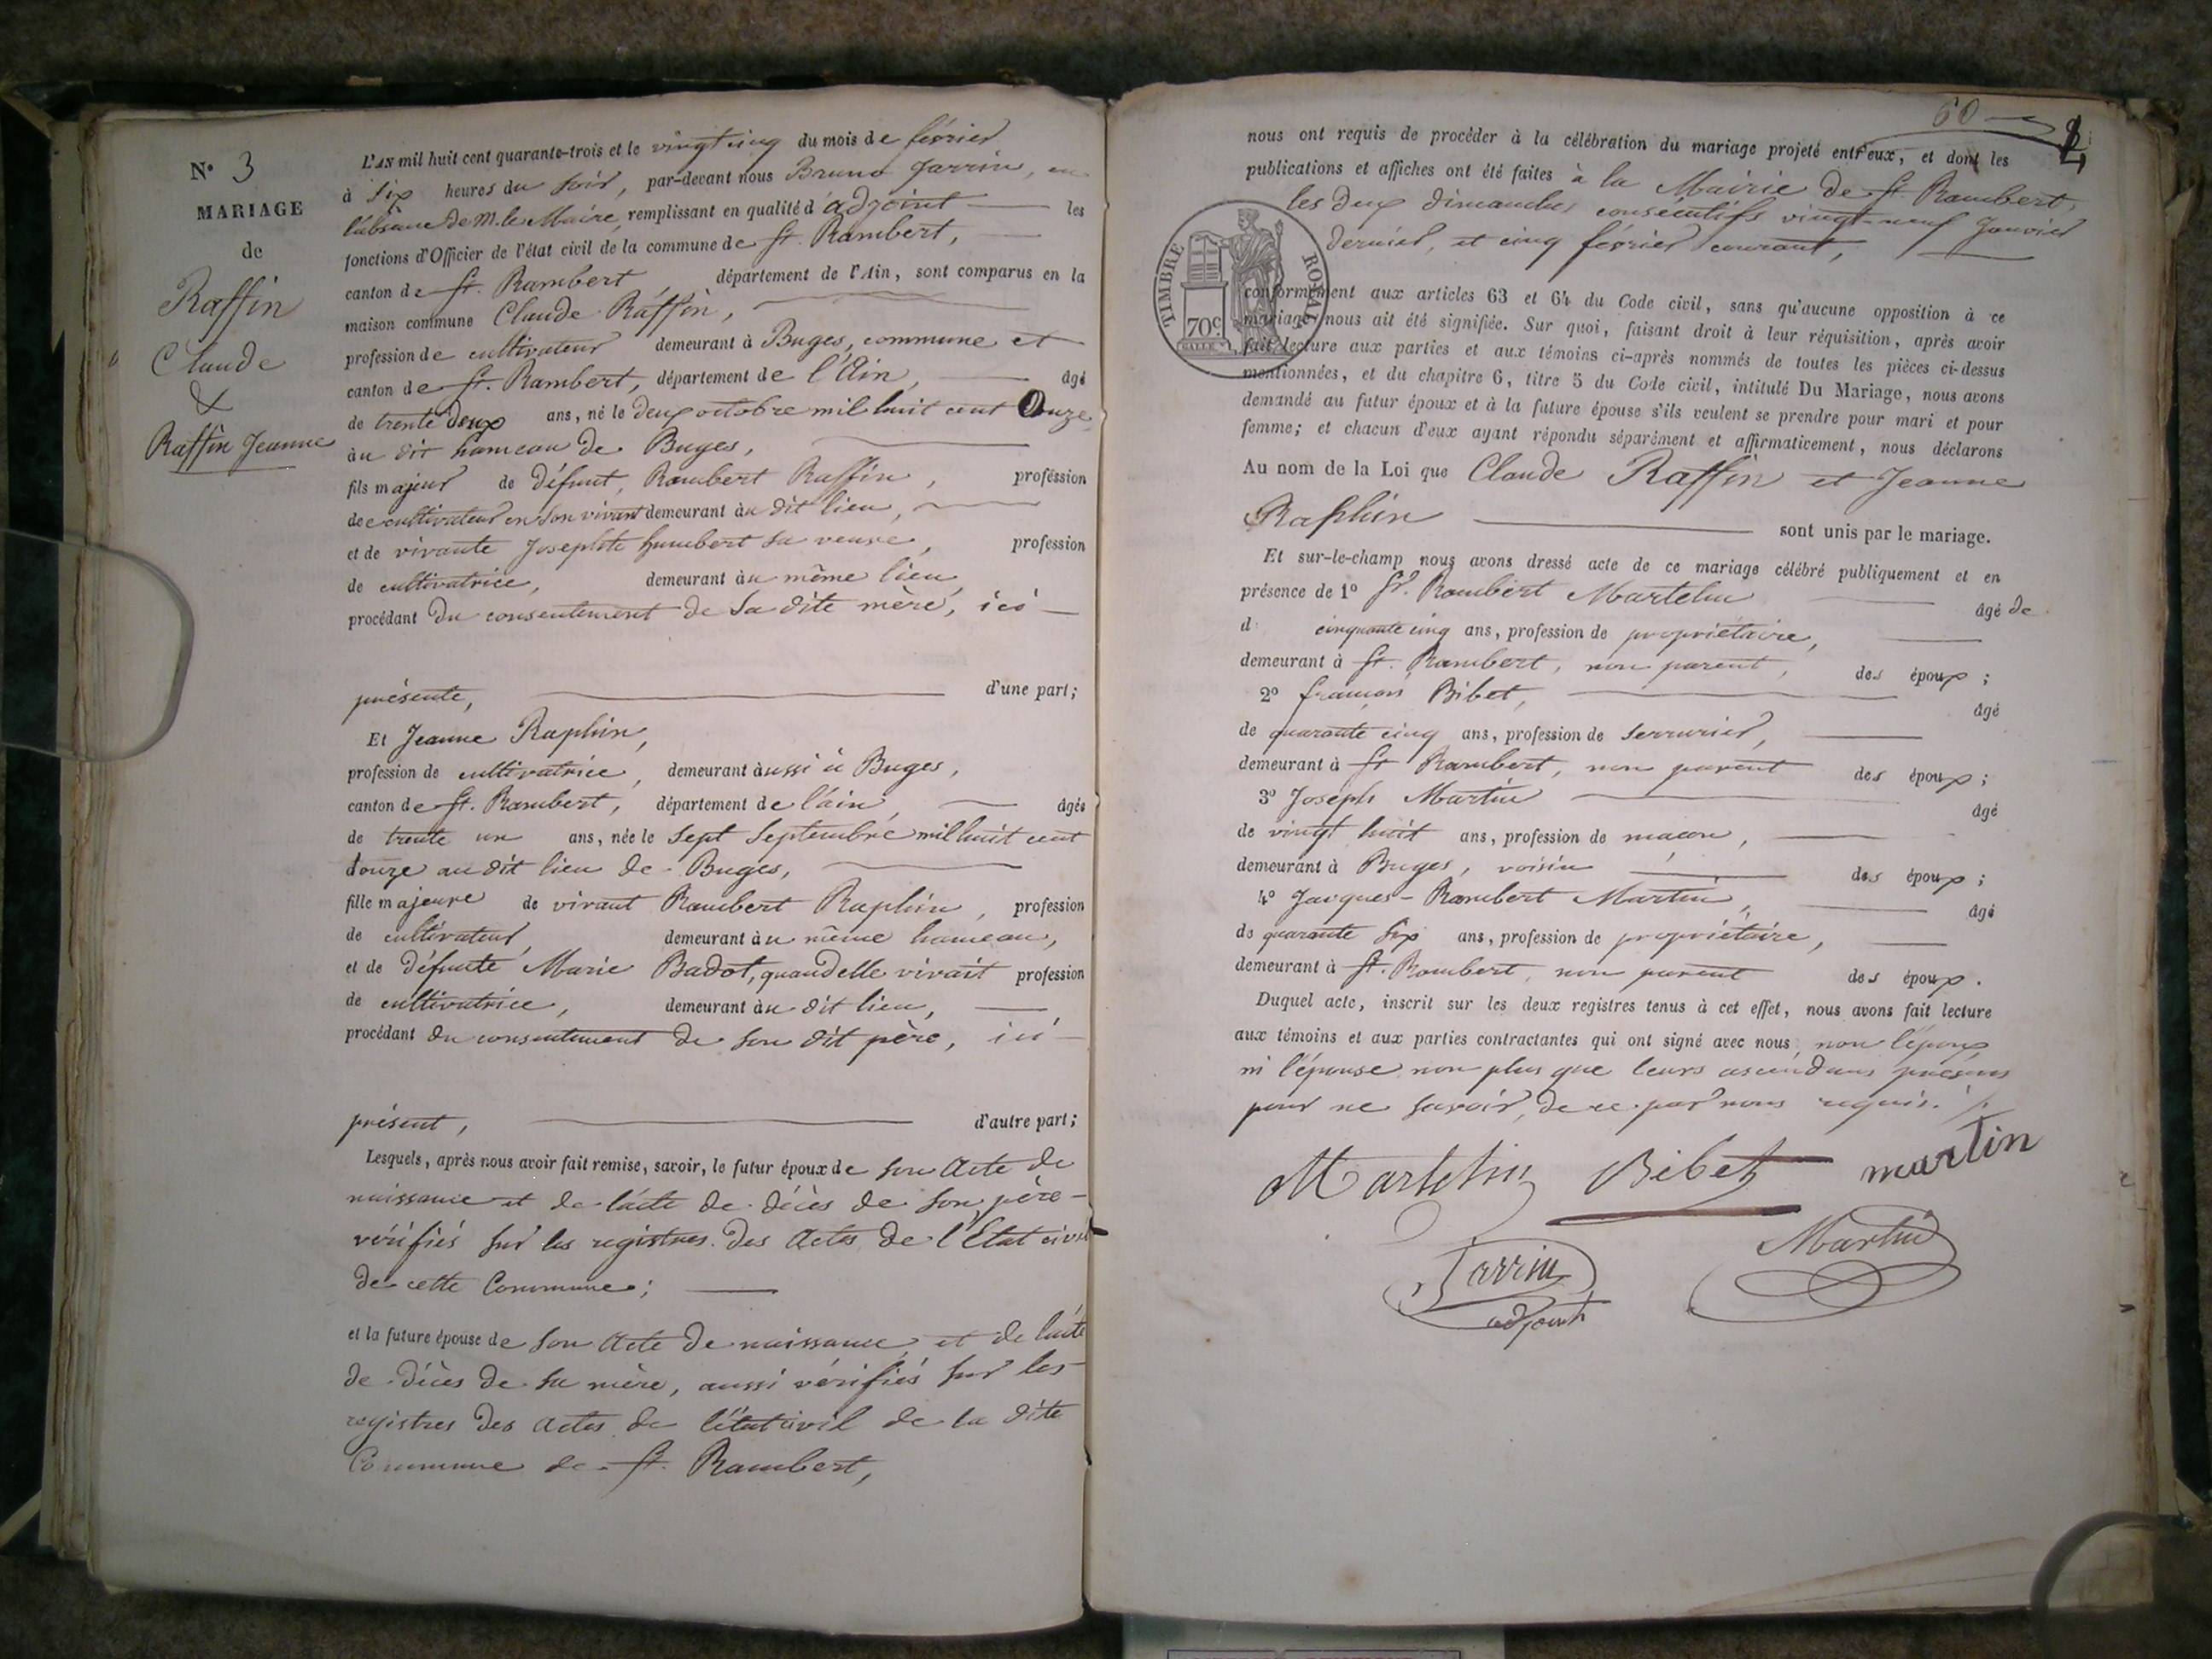 N° 3
MARIAGE
de
Raffin
Claude
&
Raffin Jeanne
L'AN mil huit cent quarante-trois et le vingt cinq du mois de février
à six heures du soir, par-devant nous Bruno Jarrin, en
l'absence de M. le Maire, remplissant en qualité d'adjoint les
fonctions d'Officier de l'état civil de la commune de St. Rambert,
canton de St. Rambert, département de l'Ain, sont comparus en la
maison commune Claude Raffin,
profession de cultivateur demeurant à Buges, commune et
canton de St. Rambert, département de l'Ain, âgé
de trente deux ans, né le deux octobre mil huit cent onze,
au dit hameau de Buges,
fils majeur de défunt, Rambert Raffin, profession
de cultivateur en son vivant demeurant au dit lieu,
et de vivante Josephte humbert sa veuve, profession
de cultivatrice, demeurant au même lieu,
procédant du consentement de sa dite mère, ici
présente, d'une part;
Et Jeanne Raphin,
profession de cultivatrice, demeurant aussi à Buges,
canton de St. Rambert, département de l'ain, âgée
de trente un ans, née le sept Septembre mil huit cent
douze au dit lieu de Buges,
fille majeure de vivant Rambert Raphin, profession
de cultivateur, demeurant au même hameau,
et de défunte Marie Badot, quand elle vivait profession
de cultivatrice, demeurant au dit lieu,
procédant du consentement de son dit père, ici
présent, d'autre part;
Lesquels, après nous avoir fait remise, savoir, le futur époux de son Acte de
naissance et de l'acte de décès de son père
vérifiés sur les registres des Actes de l'Etat civil
de cette Commune;
et la future épouse de son Acte de naissance et de l'acte
de décès de sa mère, aussi vérifiés sur les
registres des actes de l'état civil de la dite
Commune de St. Rambert,
60
nous ont requis de procéder à la célébration du mariage projeté entr'eux, et dont les
publications et affiches ont été faites à la Mairie de St. Rambert,
les deux dimanches consécutifs vingt-neuf Janvier
dernier, et cinq février courant,
TIMBRE ROYAL
70c
conformément aux articles 63 et 64 du Code civil, sans qu'aucune opposition à ce
mariage nous ait été signifiée. Sur quoi, faisant droit à leur réquisition, après avoir
fait lecture aux parties et aux témoins ci-après nommés de toutes les pièces ci-dessus
mentionnées, et du chapitre 6, titre 5 du Code civil, intitulé Du Mariage, nous avons
demandé au futur époux et à la future épouse s'ils veulent se prendre pour mari et pour
femme; et chacun d'eux ayant répondu séparément et affirmativement, nous déclarons
Au nom de la Loi que Claude Raffin et Jeanne
Raphin sont unis par le mariage.
Et sur-le-champ nous avons dressé acte de ce mariage célébré publiquement et en
présence de 1° Sr. Rambert Martelin âgé de
d cinquante cinq ans, profession de propriétaire,
demeurant à St. Rambert, non parent, des époux;
2° francois Bibet, âgé
de quarante cinq ans, profession de serrurier,
demeurant à St Rambert, non parent des époux;
3° Joseph Martin âgé
de vingt huit ans, profession de macon,
demeurant à Buges, voisin des époux;
4° Jacques-Rambert Martin, âgé
de quarante six ans, profession de propriétaire,
demeurant à St. Rambert, non parent des époux.
Duquel acte, inscrit sur les deux registres tenus à cet effet, nous avons fait lecture
aux témoins et aux parties contractantes qui ont signé avec nous, non l'époux
ni l'épouse non plus que leurs ascendans présens
pour ne savoir, de ce par nous requis.
Martelin Bibet martin
Jarrin Martin
adjoint